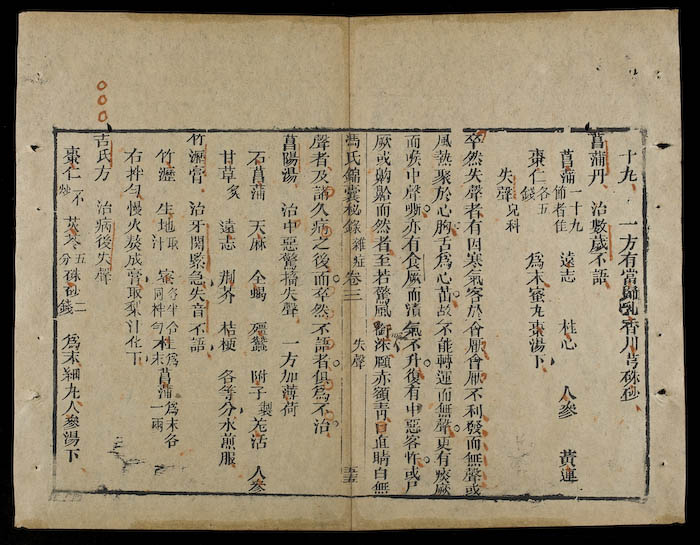 十九 一方有當歸乳香川芎硃砂
菖蒲丹 治數歲不語
菖蒲一十九節者佳 遠志 桂心 人參 黃連
棗仁各五錢 爲末蜜丸棗湯下
失聲兒科
卒然失聲者有因寒氣客於會厭會厭不利發而無聲或
風熱聚於心胸舌爲心苗故不能轉運而無聲更有痰厥
而喉中聲嘶亦有食厥而濆氣不升復有中惡客忤或尸
厥或 而然者至若驚風 深顱赤額青日直睛白無
馮氏錦囊秘錄 雜症卷三 失聲 五
聲者及諸久病之後而卒然不語者俱爲不治
菖陽湯 治中惡驚搐失聲 一方加薄荷
石菖蒲 天麻 全蝎 殭蠶 附子製 羌活 人參
甘草炙 遠志 荆芥 桔梗 各等分水煎服
竹瀝膏 治牙關緊急失音不語
竹瀝 生地取汁 蜜各半合 菖蒲爲末各一兩
右拌勻慢火熬成膏取梨汁化下
古氏方 治病後失聲
棗仁不炒 茯苓五分 硃砂二錢 爲末糊丸人參湯下